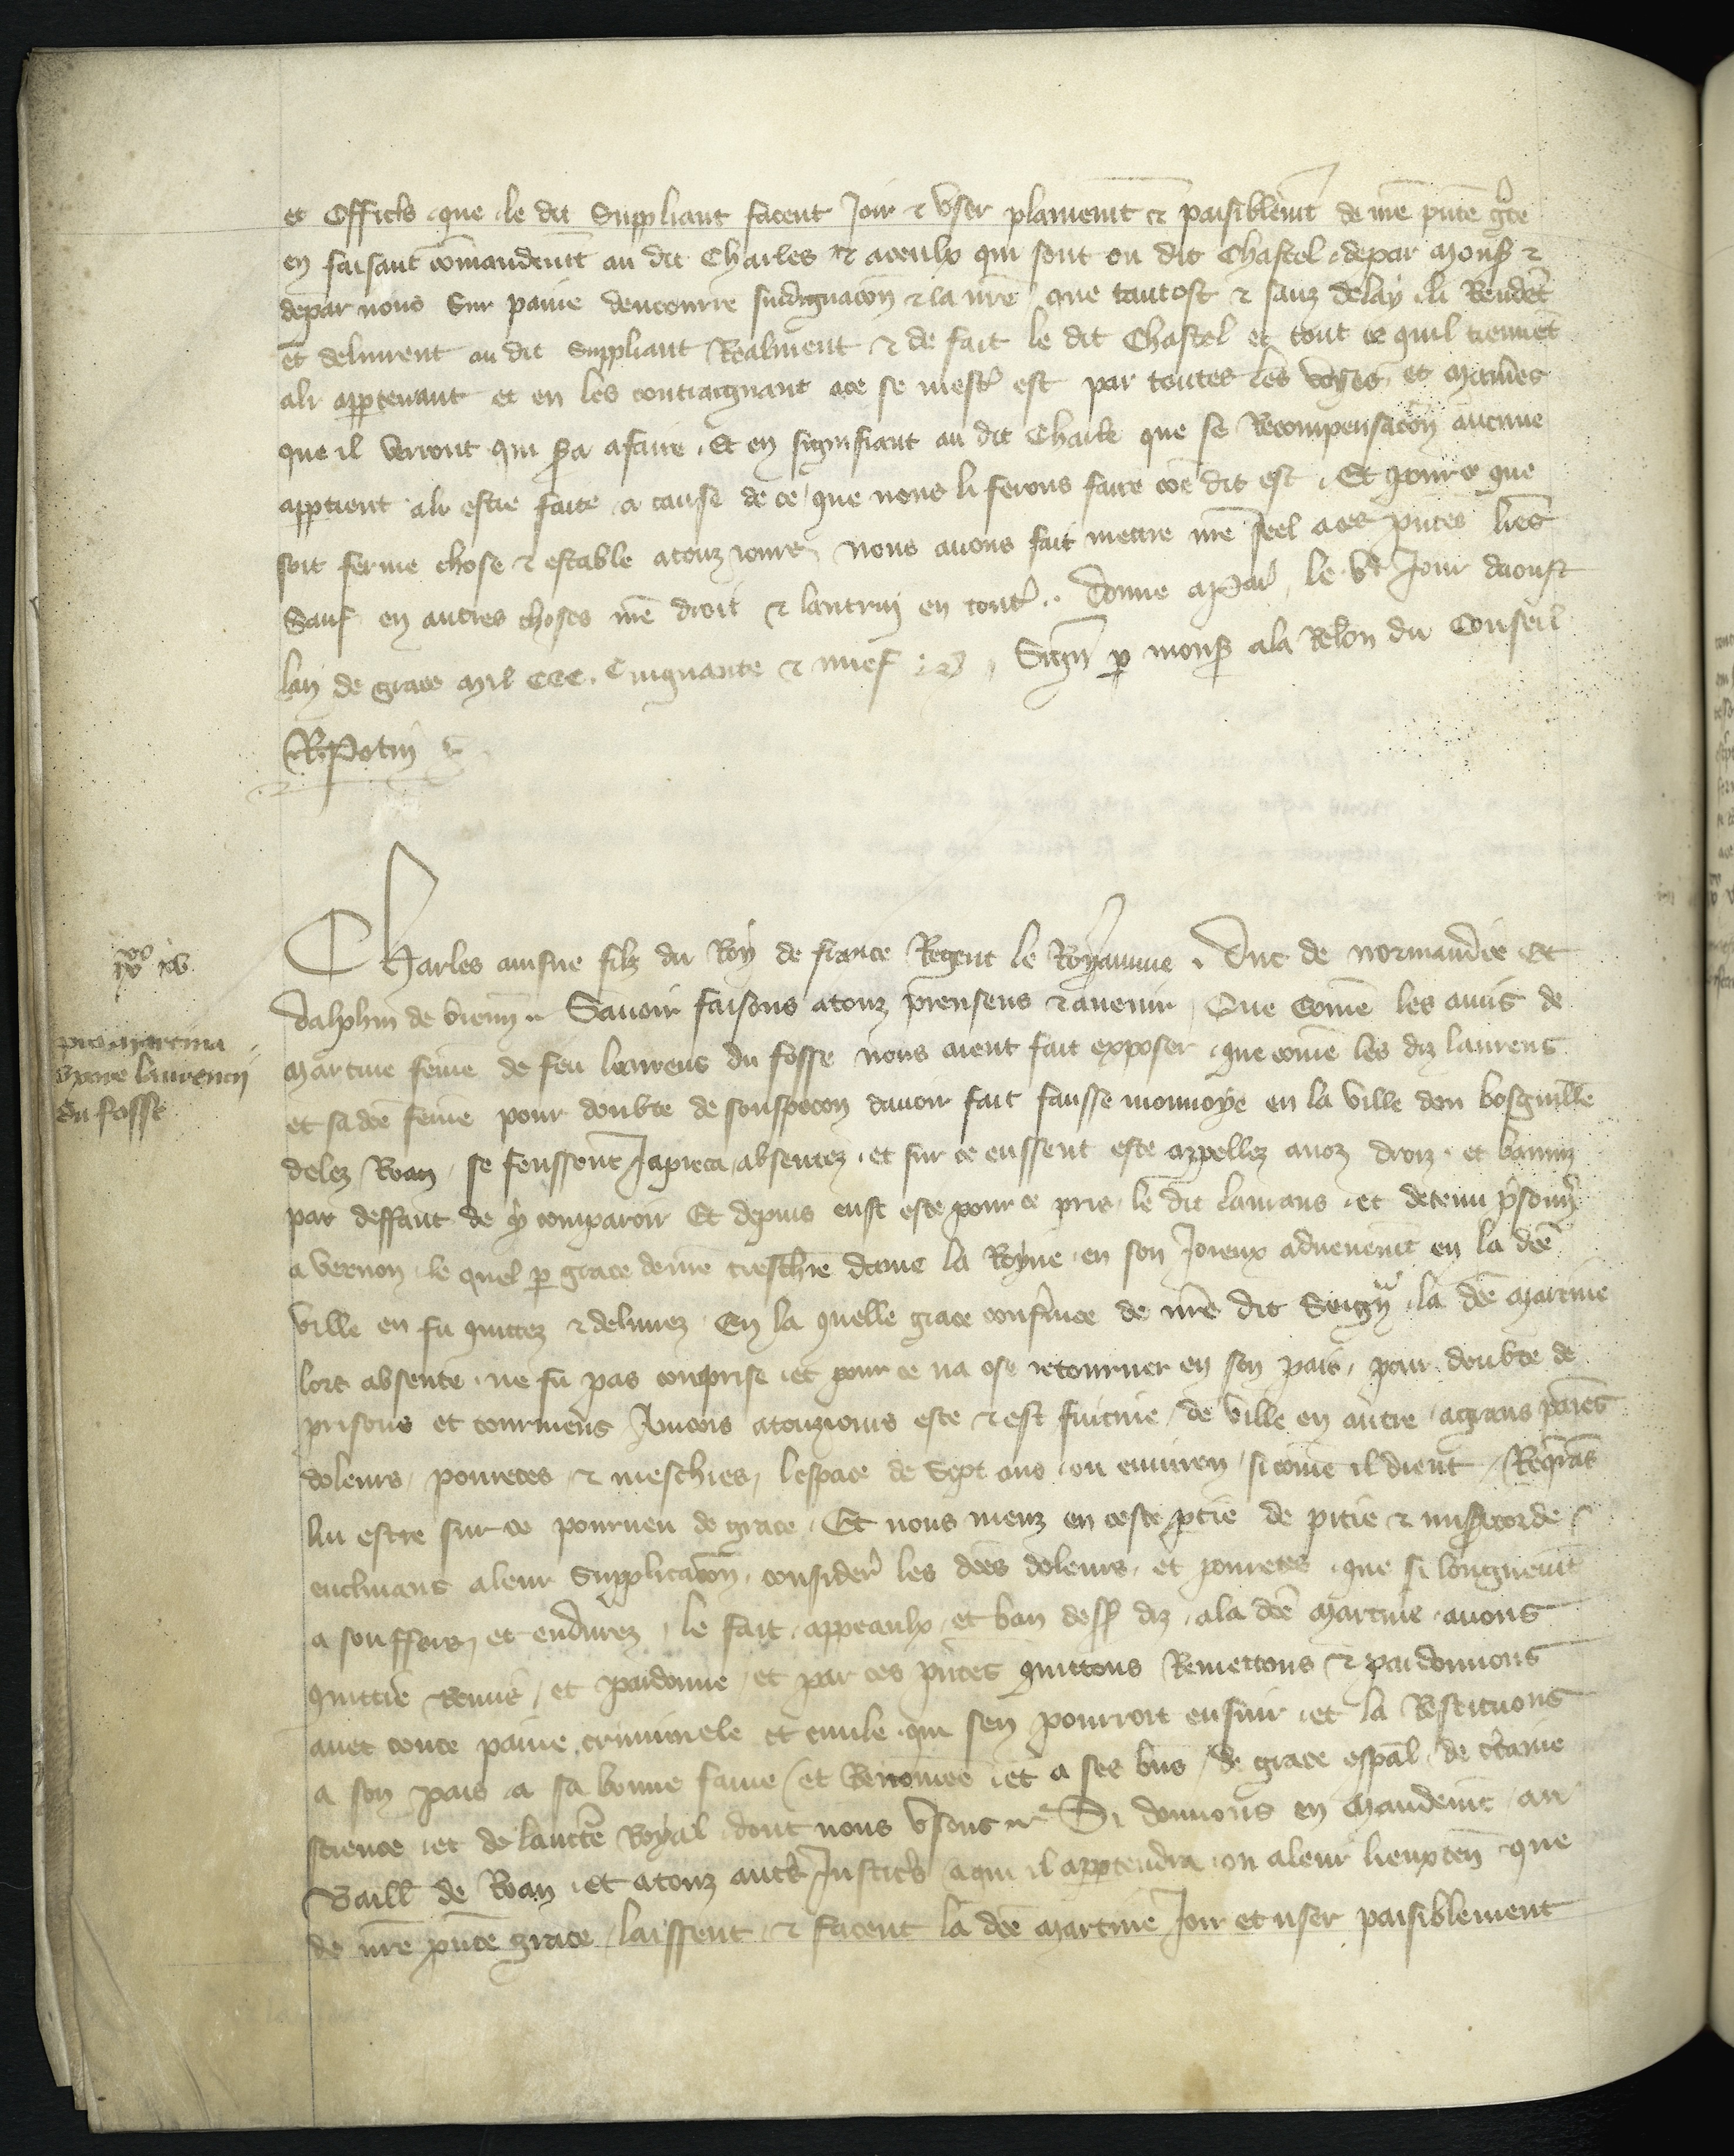 et Officiers que le dit Suppliant facent Joir & user plainemt & paisiblemt de nre pnte grace
en faisant comandemt au dit Charles & a ceulx qui sont ou dit Chastel depar Mons &
depar nous Sur paine dencourre sindignacon & la nre que tantost & sanz delay ili Rendent
et delivrent au dit Suppliant Realment & de fait le dit Chastel et tout ce quil tiennet
ali appartenant et en les contraignant ace se mest est par toutes les voyes et manieres
que il verront qui sera afaire. Et en signifiant au dit Charle que se Recompensacon aucune
appartient ali estre faite a cause de ce que nous li ferons faire coe dit est. Et pource que
soit ferme chose & estable atouz iours nous avons fait mettre nre seel aces pntes lres
Sauf en autres choses nre droit & lautruy en toutes. Donne a Par le Ve Jour daoust
lan de grace Mil CCC. Cinquante & nuef. Sign p mons ala Relon du Conseil
R. Potin
Charles ainsne filz du Roy de france Regent le Royaume. Duc de normandie Et
dalphin de vienn. Savoir faisons atouz prensens & avenir Que come les amis de
Martine feme de feu Laurens du fosse nous aient fait exposer que come les diz laurens
et sa dce feme pour doubte de souspecon davoir fait fausse monnoye en la ville dou bosguille
delez Roan se feussent Japieca absentez et sur ce eussent este appellez anoz droiz et banniz
par deffaut de y comparoir Et depuis eust este pour ce pris le dit laurans et detenu prisonn
a vernon le quel p grace de nre treschre dame la Royne en son Joieux advenemt en la dce
ville en fu quittez & delivrez En la quelle grace confirmee de nre dit Seign la dce Martine
lors absente ne fu pas comprise et pour ce na ose retourner en son pais pour doubte de
prisons et tourmens Aincois atouziours este & est fuitive de ville en autre agrans paines
doleurs povretes & meschies lespace de Sept ans ou environ si come il dient Requerans
lui estre sur ce pourveu de grace. Et nous meuz en ceste ptie de pitie & misericorde
enclinans aleur Supplicacon consider les dces doleurs et povretes que si longuemt
a souffers et endurez le fait appeaulx et ban dess diz ala dce Martine avons
quittie Remis et pardonne et par ces pntes quittons Remettons & pardonnons
avec toute paine criminele et civile qui sen pourroit ensuir et la Restituons
a son pais a sa bonne fame et Renomee et a ses bns de grace espal de ctaine
science et de lauctte Royal dont nous usons. Si donnons en Mandemt au
Baill de Roan et atouz autrs Justicrs aqui il appartendra ou aleur lieuxten que
de nre pnte grace laissent & facent la dce Martine Joir et user paisiblement
pro Martina
uxore laurencij
du fosse